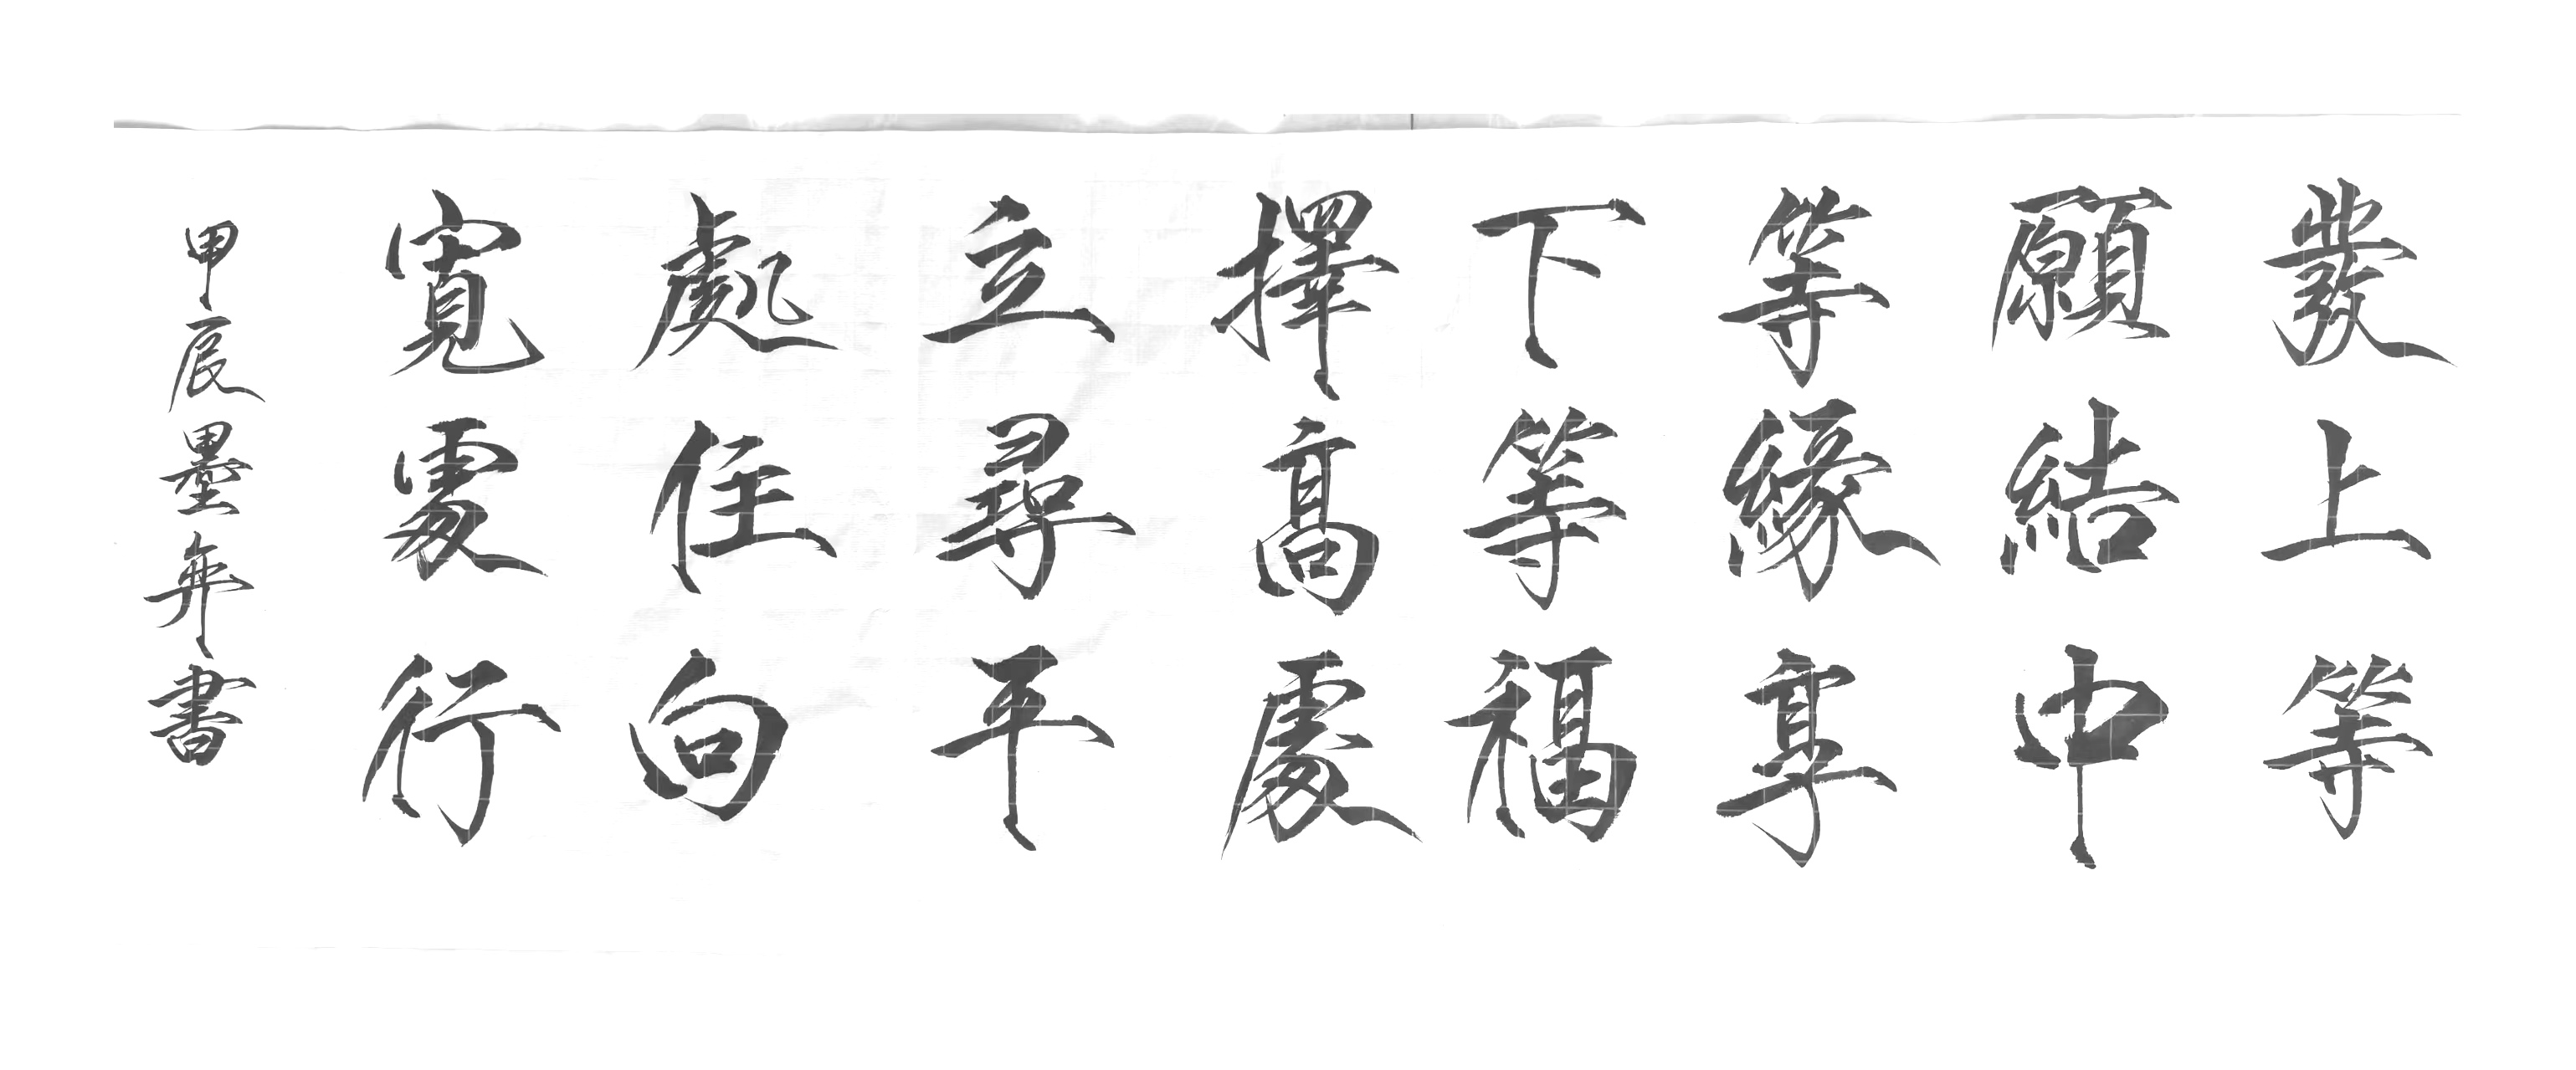 發上等
願結中
等緣享
下等福
擇高處
立尋平
處住向
寬處行
甲辰墨無書